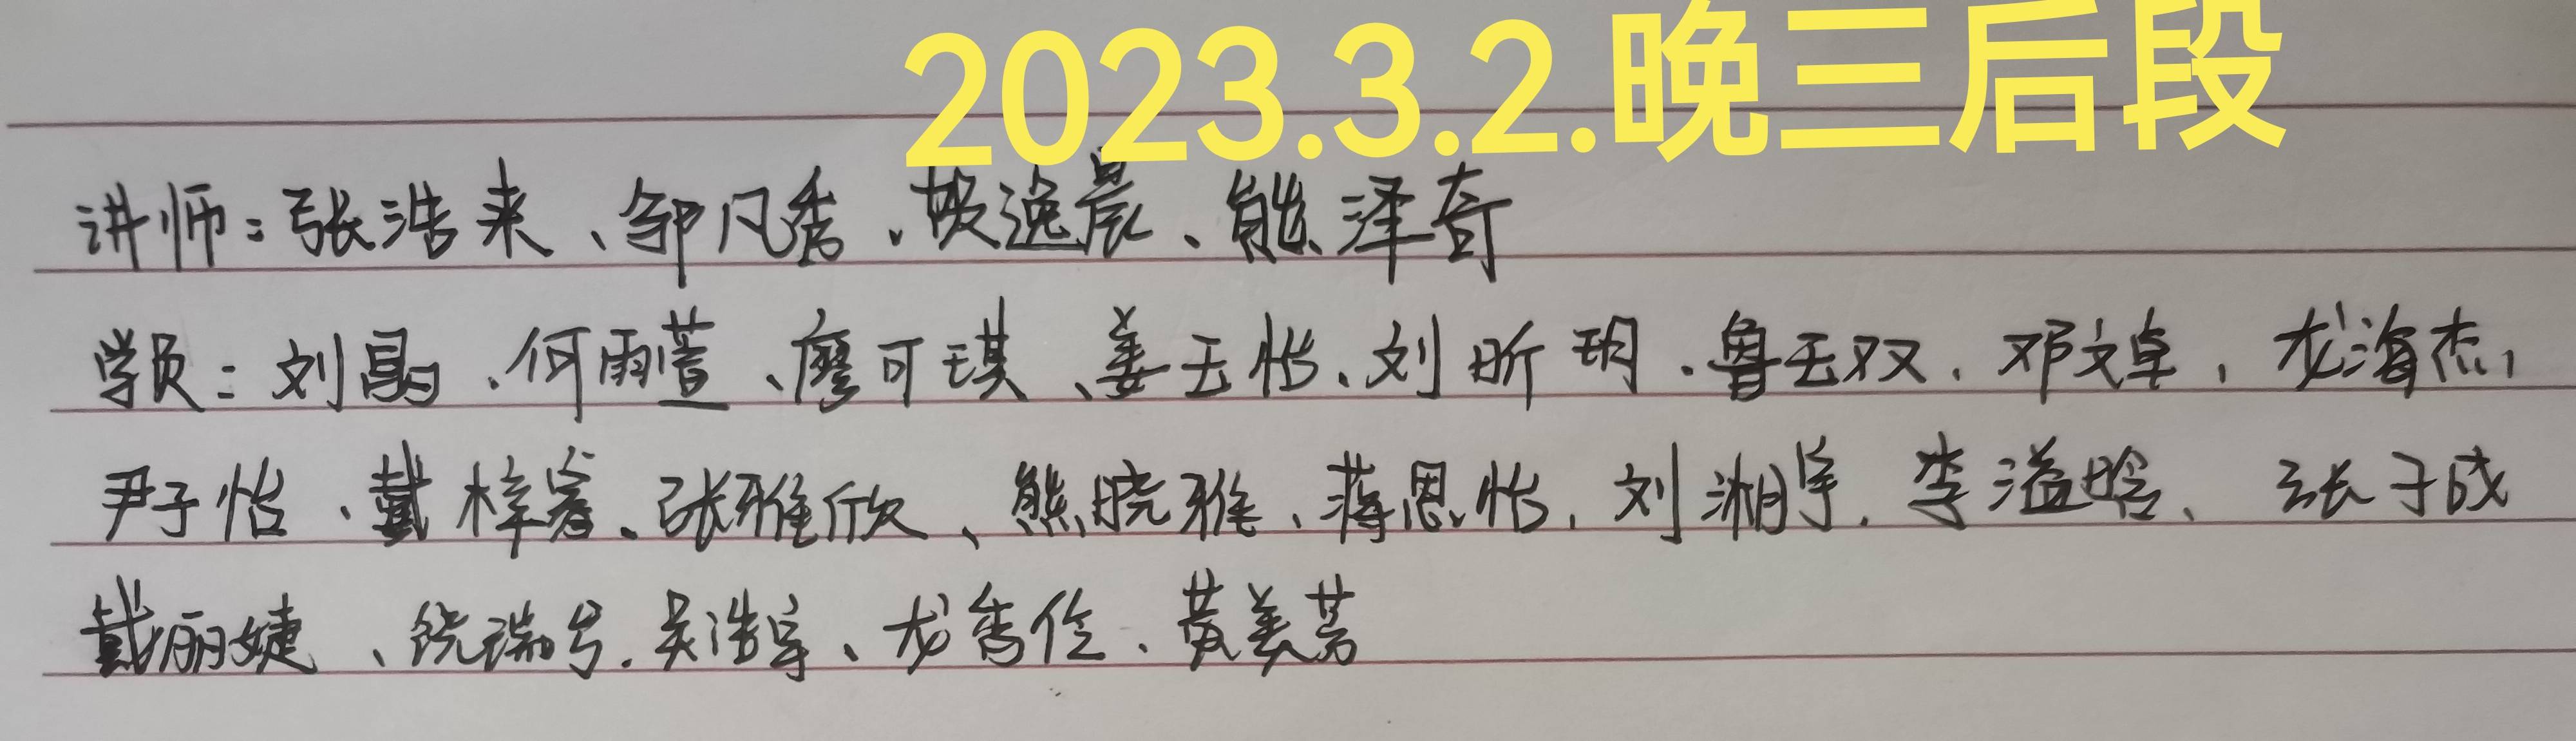 2023.3.2.晚三后段
讲师:张浩来、邹凡秀、胡逸晨、熊泽奇
学员:刘昌、何雨萱、廖可琪、姜玉怡、刘昕玥、鲁玉双、邓文卓,龙海杰,
尹子怡、戴梓睿、张雅欣、熊晓雅、蒋思怡,刘湘宇,李溢晗、张子成
戴丽婕、饶瑞兮,吴浩宇、龙秀伶、黄美芳